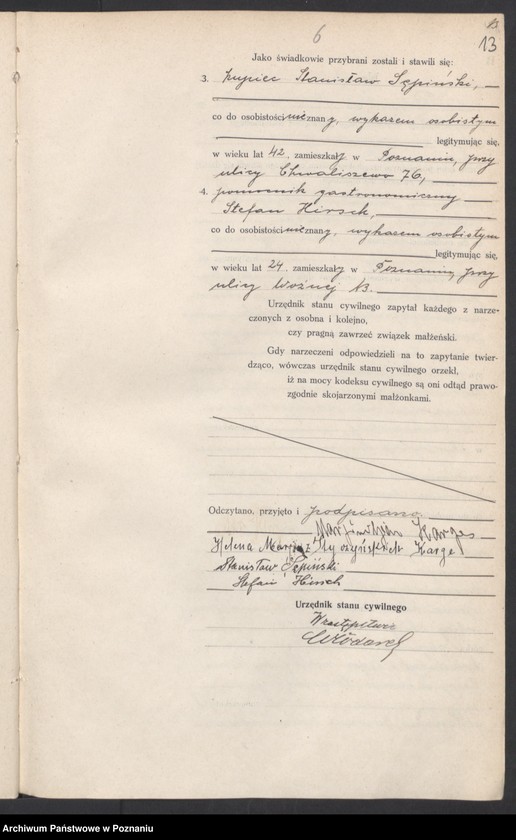 6
13
13
Jako świadkowie przybrani zostali i stawili się:
3. kupiec Stanisław Sępiński, —
co do osobistości nieznany, wykazem osobistym
legitymując się,
w wieku lat 42, zamieszkały w Poznaniu, przy
ulicy Chwaliszewo 76, —
4. pomocnik gastronomiczny —
Stefan Hirsch, —
co do osobistości nieznany, wykazem osobistym
legitymując się,
w wieku lat 24, zamieszkały w Poznaniu, przy
ulicy Woźnej 13. —
Urzędnik stanu cywilnego zapytał każdego z narze-
czonych z osobna i kolejno,
czy pragną zawrzeć związek małżeński.
Gdy narzeczeni odpowiedzieli na to zapytanie twier-
dząco, wówczas urzędnik stanu cywilnego orzekł,
iż na mocy kodeksu cywilnego są oni odtąd prawo-
zgodnie skojarzonymi małżonkami.
Odczytano, przyjęto i podpisano.
Karge
Helena z Karge
Stanisław Sępiński
Stefan Hirsch
Urzędnik stanu cywilnego
W zastępstwie
Archiwum Państwowe w Poznaniu